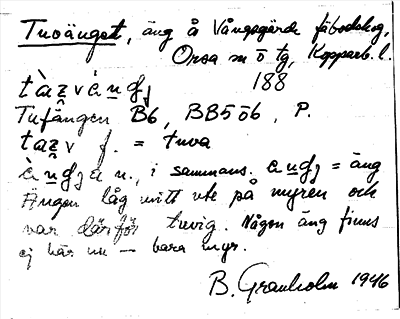 Tuvänget, äng å Vångsgärde fäbodskog,
Orsa sn o tg, Kopparb. l.
188
Tuvängen B6, BB5ö6, P.
f. = tuva
n., i sammans. = äng
Ängen låg mitt ute på myren och
var därför tuvig. Någon äng finns
ej här nu — bara myr.
B. Granholm 1946